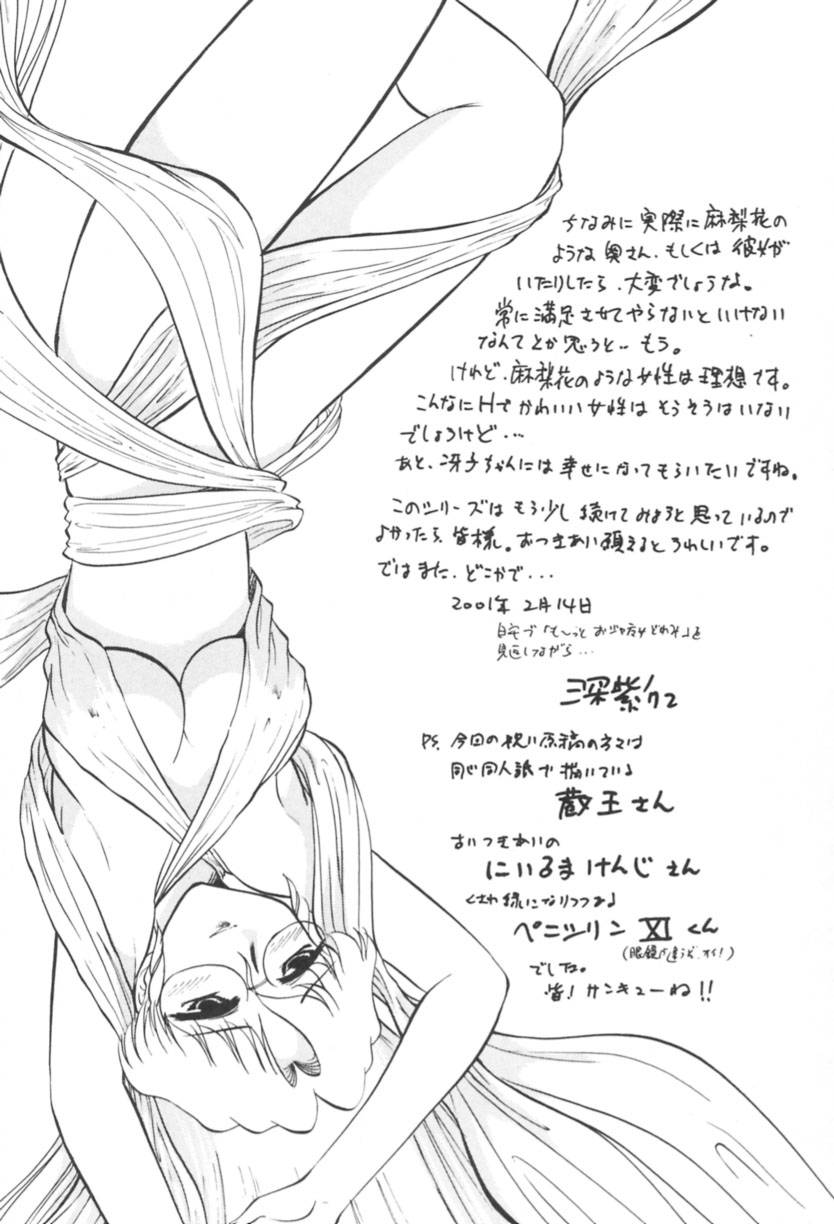 ちなみに実際に麻梨花の
ような奥さん、もしくは彼女が
いたりしたら、大変でしょうな。
常に満足させてやらないといけない
なんてとか思うと‥もう。
けれど、麻梨花のような女性は理想です。
こんなにHでかわいい女性はそうそうはいない
でしょうけど・・・
あと、冴子ちゃんには幸せになってもらいたいですね。
このシリーズはもう少し続けてみようと思っているので
よかったら、皆様。おつきあい願えるとうれしいです。
ではまた、どこかで・・・
2001年 2月14日
自宅で「も〜っと おジャ魔女どれみ」を
見返しながら・・・
深紫クコ
PS. 今回の祝い原稿の方々は
同じ同人誌で描いている
蔵王さん
にいるまけんじさん
くされ縁になりつつある
ペニシリンXIくん
でした。
皆！サンキューね!!